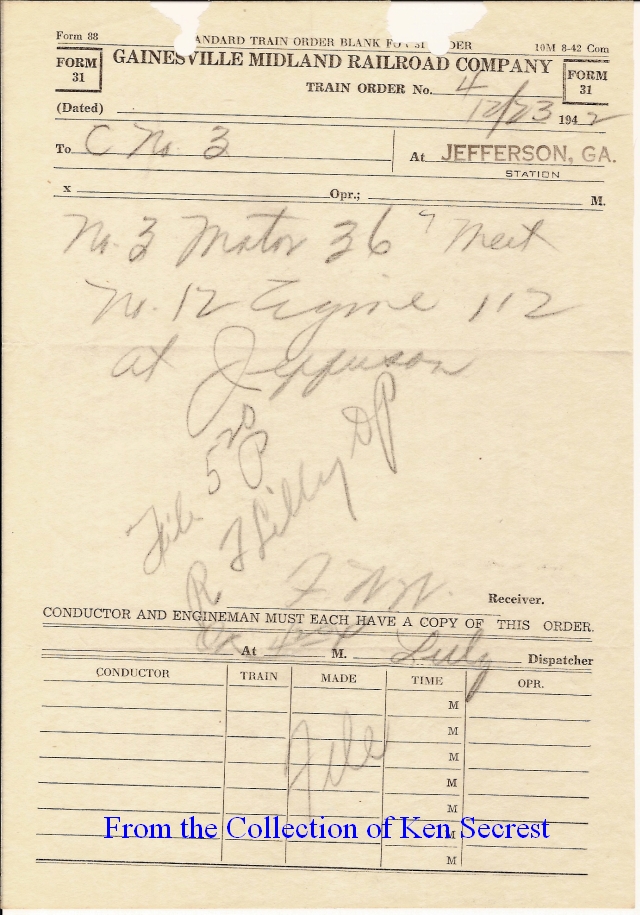 Form 88
STANDARD TRAIN ORDER BLANK FOR 31 ORDER
10M 8-42 Com
FORM 31
GAINESVILLE MIDLAND RAILROAD COMPANY
FORM 31
TRAIN ORDER No. 4
(Dated) 12/23 1942
To C No. 3 At JEFFERSON, GA.
STATION
x Opr.; M.
No. 3 Motor 36 Meet
No. 12 Engine 112
at Jefferson
File 5 20 P
Lilly DP
Receiver.
CONDUCTOR AND ENGINEMAN MUST EACH HAVE A COPY OF THIS ORDER.
At M. Dispatcher
CONDUCTOR TRAIN MADE TIME OPR.
M
M
M
File M
M
M
M
From the Collection of Ken Secrest